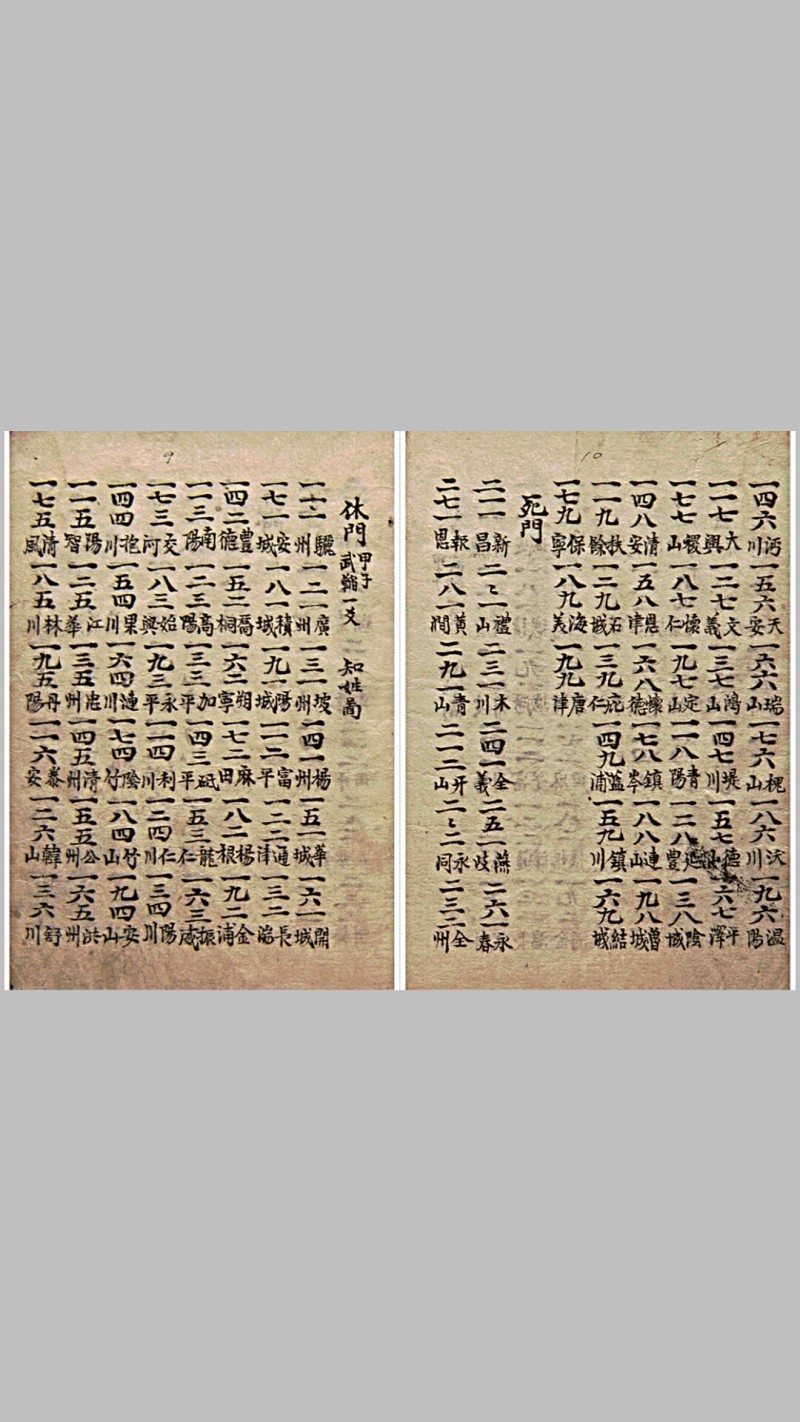 9
休門 甲子 武鞱一爻 知姓局
一一一 驪州 一二一 廣州 一三一 坡州 一四一 楊州 一五一 華城 一六一 開城
一七一 安城 一八一 積城 一九一 陽城 一一二 富平 一二二 通津 一三二 長湍
一四二 豊德 一五二 喬桐 一六二 朔寧 一七二 麻田 一八二 楊根 一九二 金浦
一一三 南陽 一二三 高陽 一三三 加平 一四三 砥平 一五三 龍仁 一六三 振威
一七三 交河 一八三 始興 一九三 永平 一一四 利川 一二四 仁川 一三四 陽川
一四四 抱川 一五四 果川 一六四 漣川 一七四 陰竹 一八四 竹山 一九四 安山
一一五 陽智 一二五 江華 一三五 忠州 一四五 清州 一五五 公州 一六五 洪州
一七五 清風 一八五 林川 一九五 丹陽 一一六 泰安 一二六 韓山 一三六 舒川
10
一四六 沔川 一五六 天安 一六六 瑞山 一七六 槐山 一八六 沃川 一九六 温陽
一一七 大興 一二七 文義 一三七 鴻山 一四七 堤川 一五七 德山 一六七 平澤
一七七 稷山 一八七 懷仁 一九七 定山 一一八 青陽 一二八 延豊 一三八 陰城
一四八 清安 一五八 恩津 一六八 懷德 一七八 鎮岑 一八八 連山 一九八 魯城
一一九 扶餘 一二九 石城 一三九 庇仁 一四九 藍浦 一五九 鎮川 一六九 結城
一七九 保寧 一八九 海美 一九九 唐津
死門
二一一 新昌 二〻一 禮山 二三一 木川 二四一 全義 二五一 燕岐 二六一 永春
二七一 報恩 二八一 黃澗 二九一 青山 二一二 山 二〻二 永同 二三二 全州